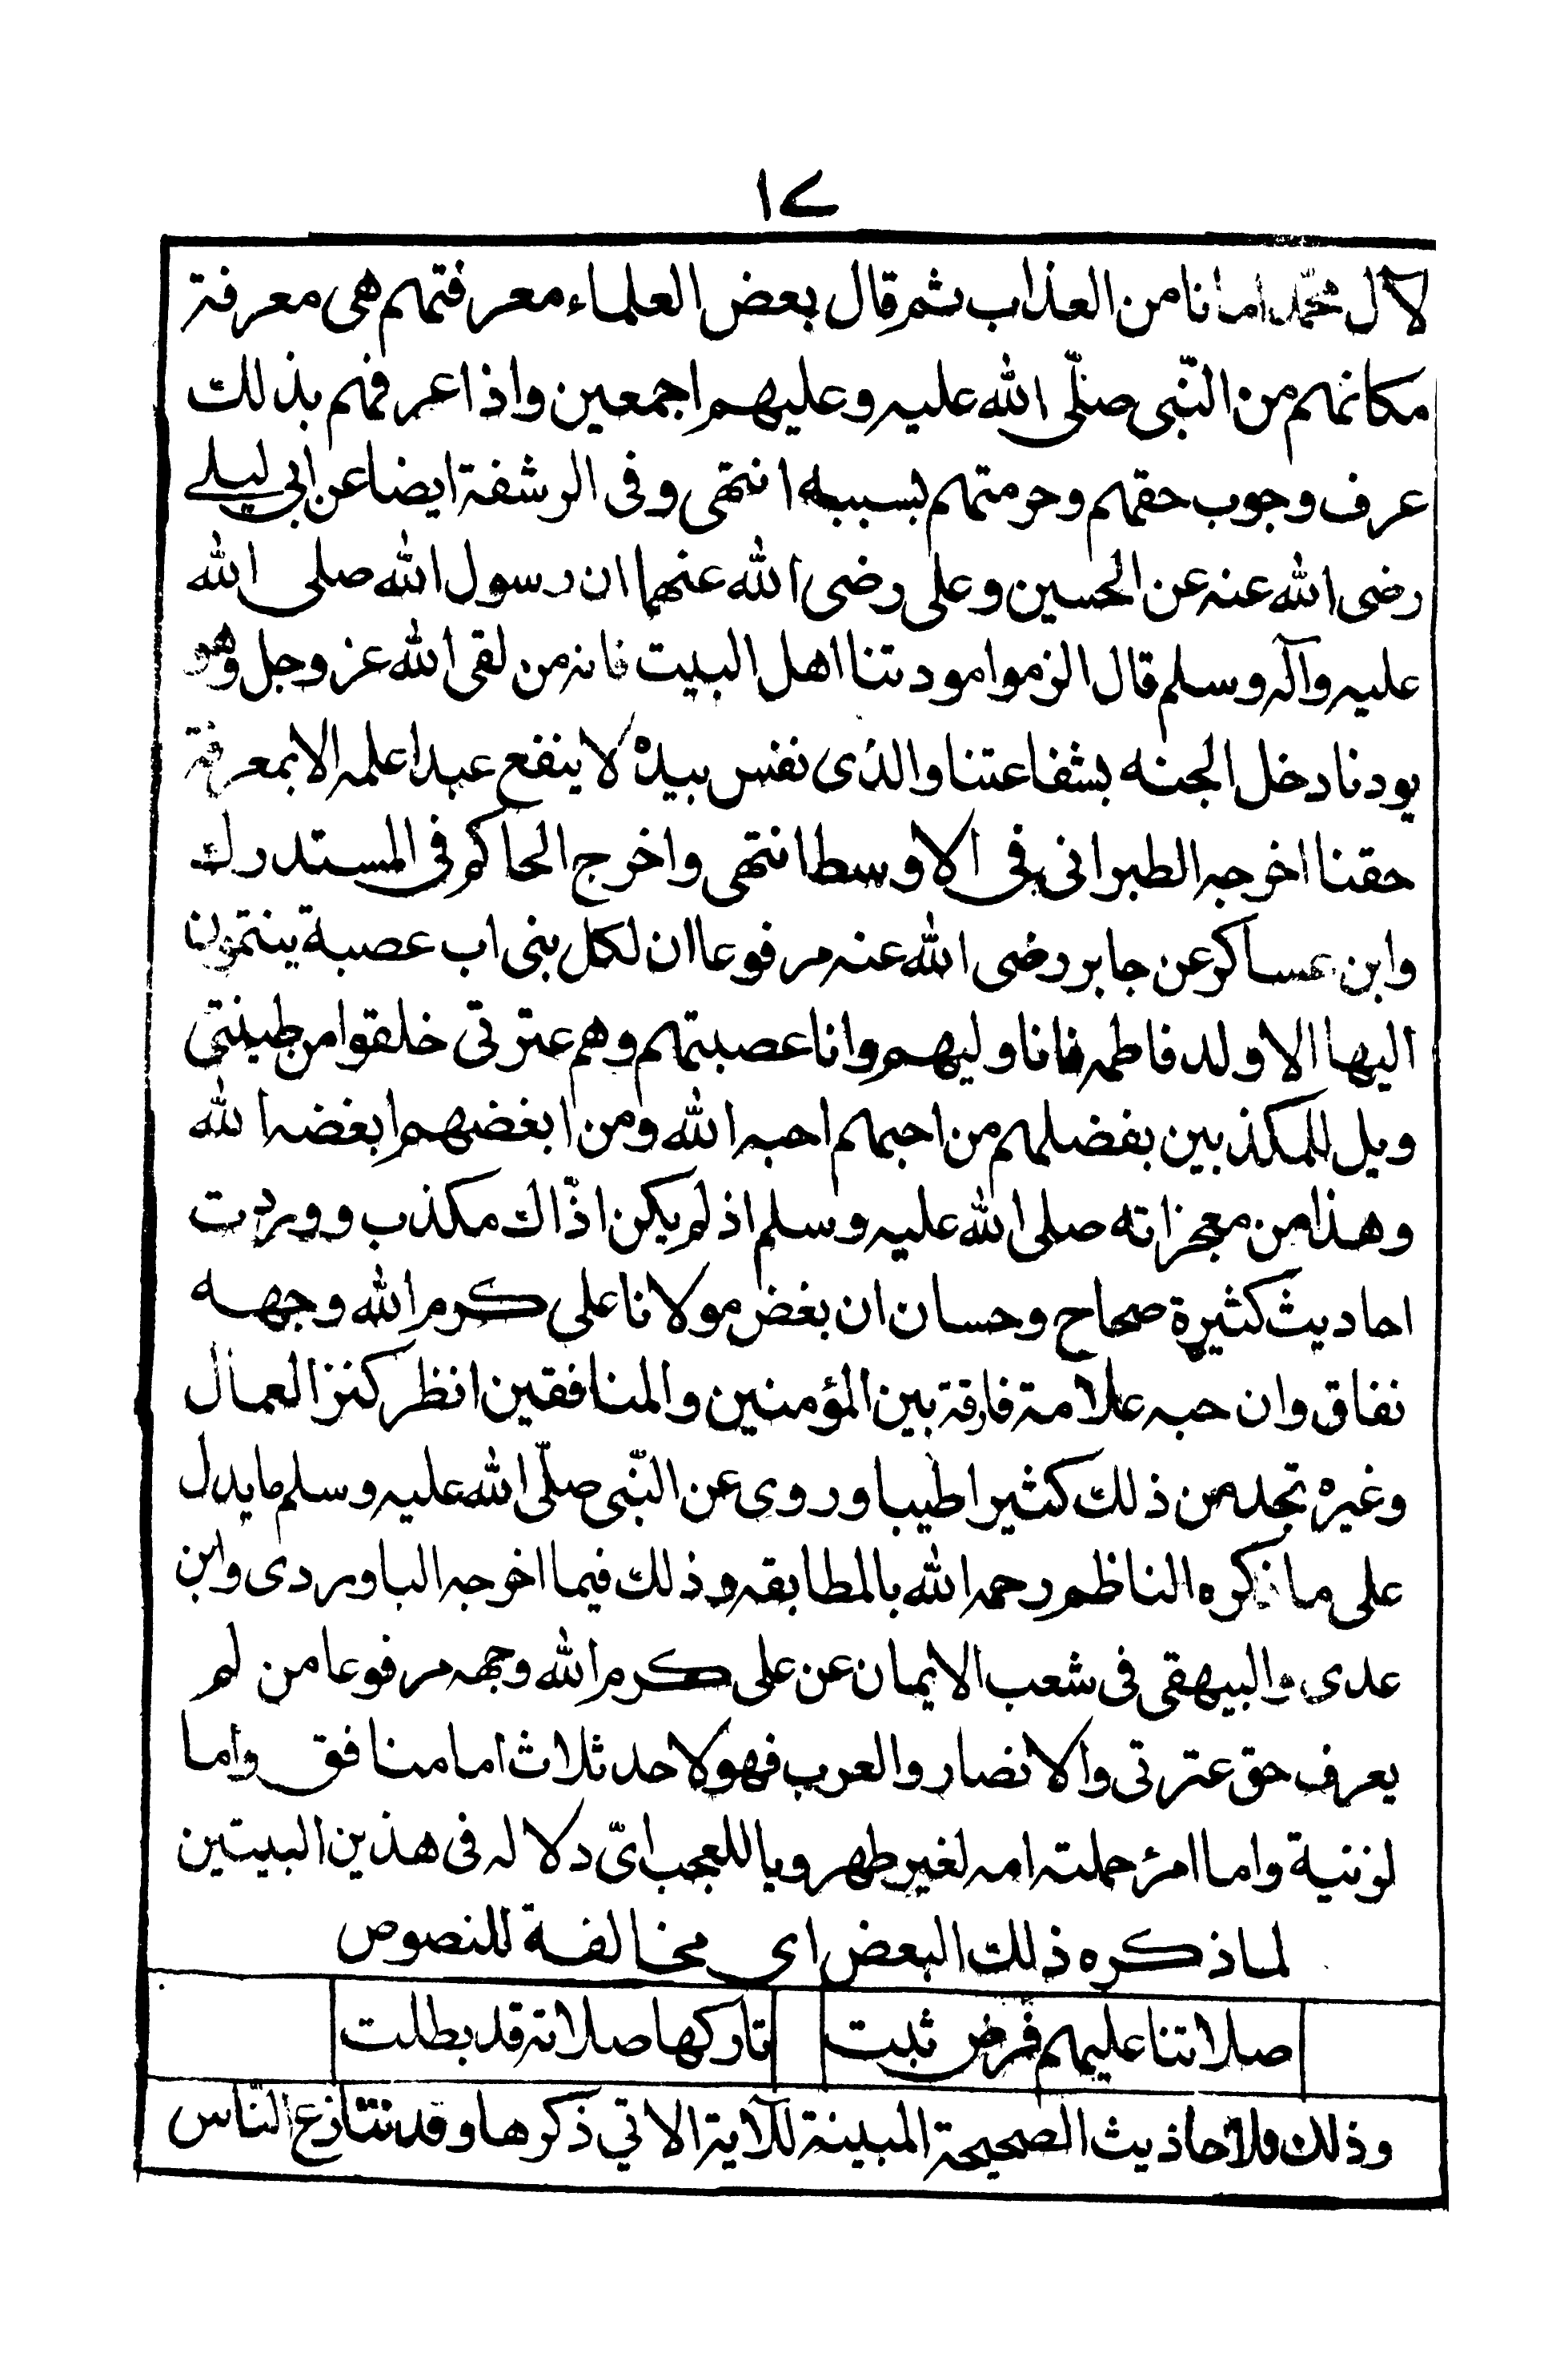 ١٧
لآل محمد امانا من العذاب ثم قال بعض العلماء معرفتهم هى معرفة
مكانهم من النّبى صلّى الله عليه وعليهم اجمعين واذا عرفهم بذلك
عرف وجوب حقهم وحرمتهم بسببه انتهى وفى الرشفة ايضا عن ابي ليلے
رضى الله عنه عن الحسين وعلى رضى الله عنهما ان رسول الله صلى الله
عليه وآله وسلم قال الزموا مودتنا اهل البيت فانه من لقى الله عز وجل وهو
يودنا دخل الجنه بشفاعتنا والذى نفس بيده لا ينفع عبدا علمه الا بمعرفة
حقنا اخرجه الطبرانى فى الاوسط انتهى واخرج الحاكم فى المستدرك
وابن عساكر عن جابر رضى الله عنه مرفوعا ان لكل بنى اب عصبة ينتمون
اليها الا ولد فاطمه فانا وليهم وانا عصبتهم وهم عترتى خلقوا من طينتى
ويل للمكذبين بفضلهم من احبهم احبه الله ومن ابغضهم ابغضه الله
وهذا من معجزاته صلى الله عليه وسلم اذ لم يكن اذّاك مكذب ووردت
احاديث كثيرة صحاح وحسان ان بغض مولانا على كرم الله وجهه
نفاق وان حبه علامة فارقة بين المؤمنين والمنافقين انظر كنز العمال
وغيره تجد من ذلك كثيرا طيبا وروى عن النّبى صلّى الله عليه وسلم ما يدل
على ما ذكره الناظم رحمه الله بالمطابقه وذلك فيما اخرجه الباوردى وابن
عدى والبيهقى فى شعب الايمان عن على كرم الله وجهه مرفوعا من لم
يعرف حق عترتى والانصار والعرب فهو لاحد ثلاث اما منافق واما
لزنية واما امرؤ حملته امه لغير طهر ويا للعجب اىّ دلاله فى هذين البيتين
لما ذكره ذلك البعض اى مخالفة للنصوص
صلاتنا عليهم فرض ثبت تاركها صلاته قد بطلت
وذلك فلاحاذيث الصحيحة المبينة للآية الاتي ذكرها وقد تنازع النّاس